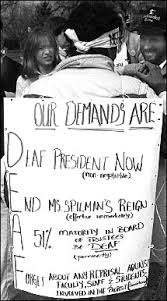 OUR DEMANDS ARE
DEAF PRESIDENT NOW
(non negotiable)
END MS. SPILMAN'S REIGN
(effective immediately)
51% MAJORITY IN BOARD
OF TRUSTEES
BE DEAF
(permanently)
FORGET ABOUT ANY REPRISAL AGAINST
FACULTY, STAFF & STUDENTS
INVOLVED IN THE PROTEST